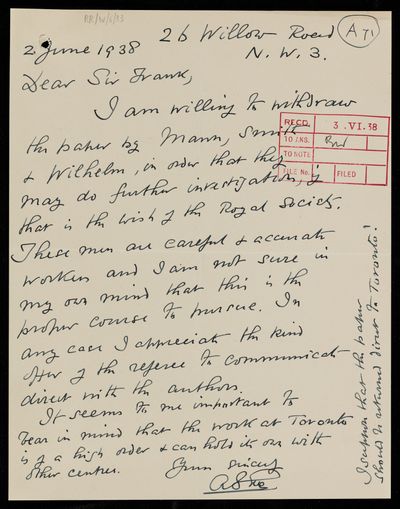 RR/W/6/13
26 Willow Road
A 71
2. June 1938
N. W. 3.
Dear Sir Frank,
I am willing to withdraw
the paper by Mann, Smith
& Wilhelm, in order that they
may do further investigation, if
that is the wish of the Royal Society.
These men are careful & accurate
workers and I am not sure in
my own mind that this is the
proper course to pursue. In
any case I appreciate the kind
offer of the referee to communicate
direct with the authors.
It seems to me important to
bear in mind that the work at Toronto
is of a high order & can hold its own with
other centres.
Yours sincerely
RECD. 3. VI. 38
TO ANS.
TO NOTE
FILE No. FILED
I suppose that the paper
should be returned direct to Toronto!